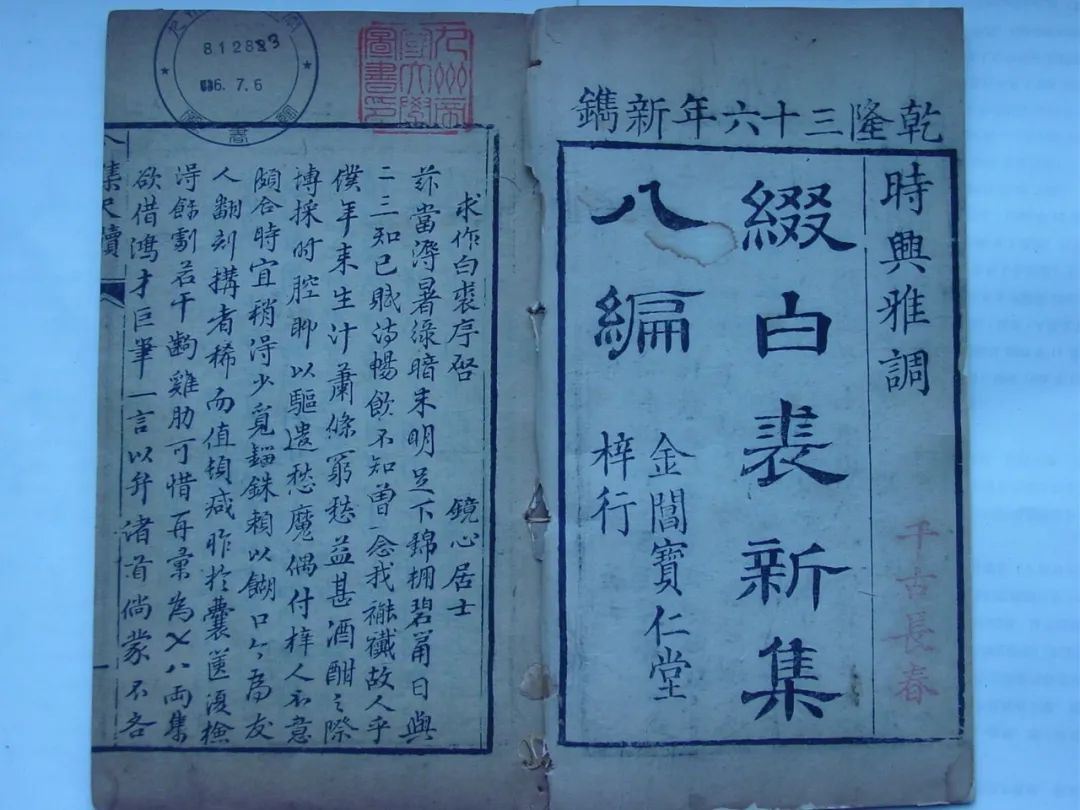 乾隆三十六年新鐫
時興雅調
千古長春
綴白裘新集
八編
金閶寶仁堂
梓行
求作白裘序啓
鏡心居士
玆當溽暑綠暗朱明足下錦棚碧筩日與
二三知已賦詩暢飲不知曾一念我襶襶故人乎
僕年來生計蕭條窮愁益甚酒酣之際
博採時腔聊以驅遣愁魔偶付梓人不意
頗合時宜稍得少覓錙銖賴以餬口今為友
人翻刻搆者稀而值頓減昨於囊篋復檢
得餘劇若干齣雞肋可惜再彙為七八兩集
欲借鴻才巨筆一言以弁諸首倘蒙不吝
八集尺牘
九州帝
國大學
圖書印
812883
6.7.6